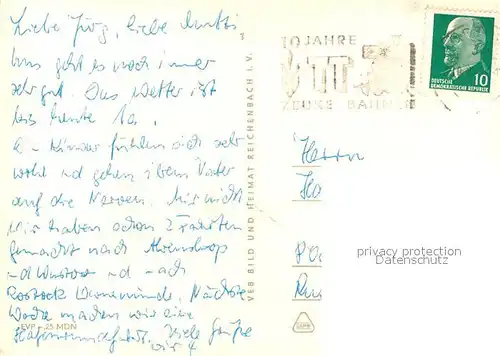 Liebe Jörg, liebe Mutti
Uns geht es noch immer
sehr gut. Das Wetter ist
bis heute 1a.
Kinder fühlen sich sehr
wohl und gehen ihrem Vater
auf die Nerven. Mir nicht
Wir haben schon 2 Fahrten
gemacht nach Ahrenshoop
und Wustrow und nach
Rostock Warnemünde. Nächste
Woche machen wir eine
Hafenrundfahrt. Viele Grüße
wir 4
EVP -.25 MDN
VEB BILD UND HEIMAT REICHENBACH I. V.
10 JAHRE
BAHN
10
DEUTSCHE
DEMOKRATISCHE REPUBLIK
Herrn
privacy protection
Datenschutz